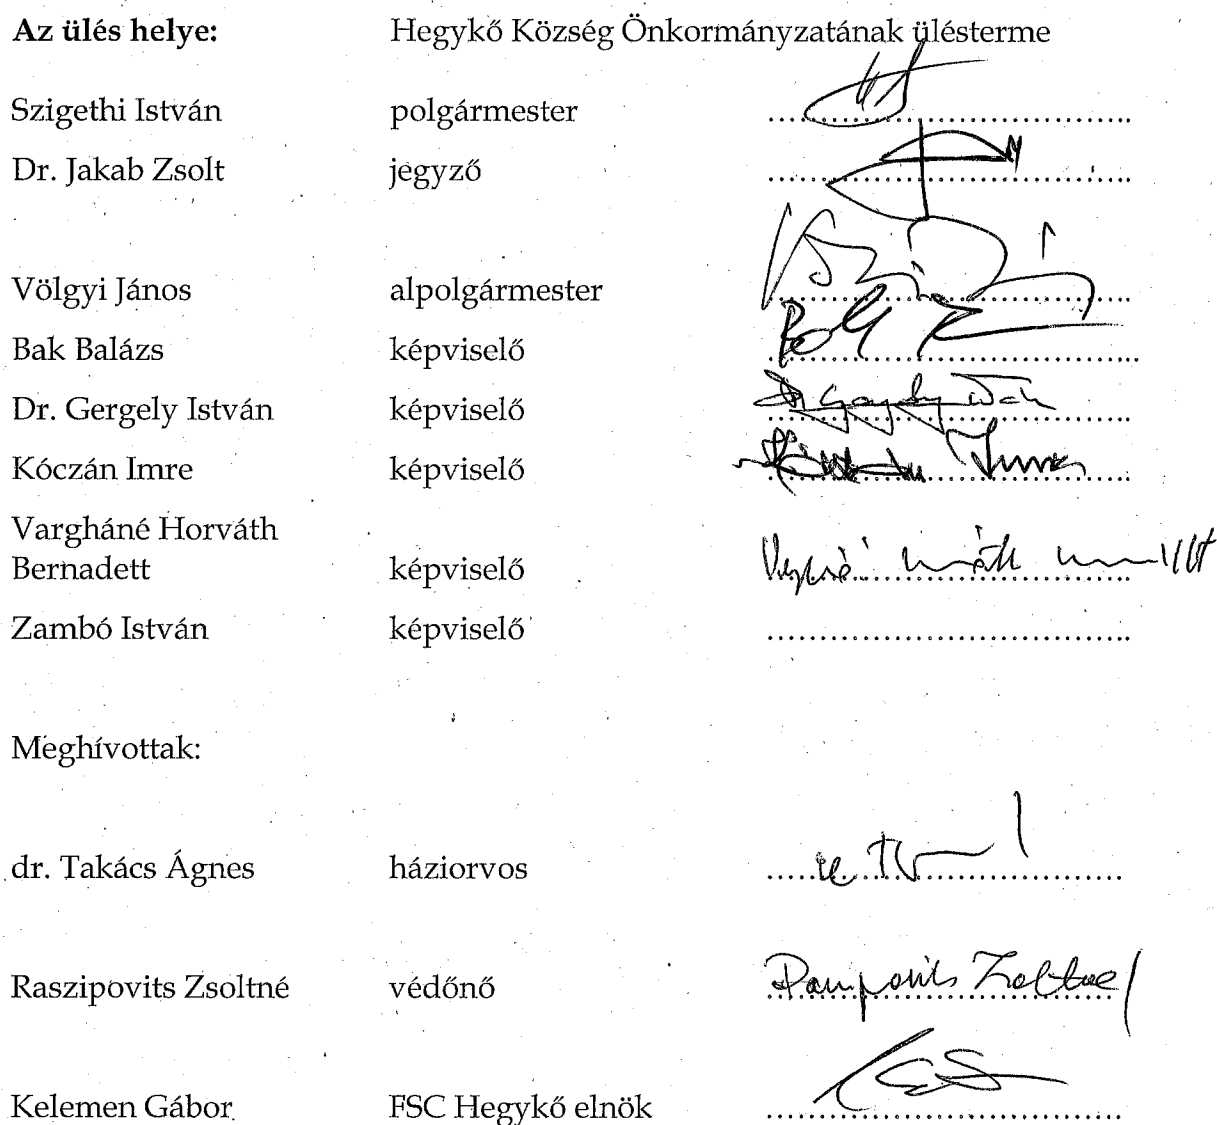 Az ülés helye: Hegykő Község Önkormányzatának ülésterme
Szigethi István polgármester
Dr. Jakab Zsolt jegyző
Völgyi János alpolgármester
Bak Balázs képviselő
Dr. Gergely István képviselő
Kóczán Imre képviselő
Vargháné Horváth
Bernadett képviselő
Zambó István képviselő
Meghívottak:
dr. Takács Ágnes háziorvos
Raszipovits Zsoltné védőnő
Kelemen Gábor FSC Hegykő elnök